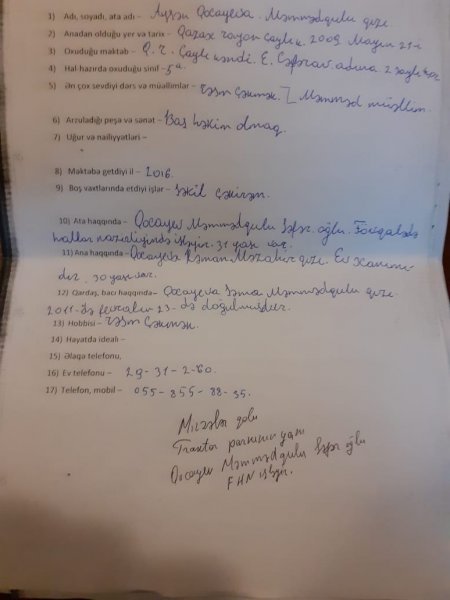 1) Adı, soyadı, ata adı - Aysən Qocayeva. Məmmədqulu qızı
2) Anadan olduğu yer və tarix - Qazax rayon Çaylı k. 2009 Mayın 21-i
3) Oxuduğu məktəb - Q. r. Çaylı kəndi. E. Səfərov. adına 2 saylı
4) Hal-hazırda oxuduğu sinif - 5ᵃ
5) Ən çox sevdiyi dərs və müəllimlər - rəsm çəkmək. Məmməd müəllim.
6) Arzuladığı peşə və sənət - Baş həkim olmaq.
7) Uğur və nailiyyətləri -
8) Məktəbə getdiyi il - 2016.
9) Boş vaxtlarında etdiyi işlər - Şəkil çəkirəm.
10) Ata haqqında - Qocayev Məmmədqulu Səfər. oğlu. Fövqəladə
hallar nazirliyində işləyir. 31 yaşı var.
11) Ana haqqında - Qocayeva Kəmalə qızı. Ev xanımı
dır. 30 yaşı var.
12) Qardaş, bacı haqqında - Qocayeva Səma Məmmədqulu qızı.
2011-də fevralın 23-də doğulmuşdur.
13) Hobbisi - rəsm çəkmək.
14) Həyatda idealı -
15) Əlaqə telefonu,
16) Ev telefonu - 29-31-2-60.
17) Telefon, mobil - 055-855-88-35.
Traktor parkının yanı
Qocayev Məmmədqulu Səfər oğlu
FHN işləyir.